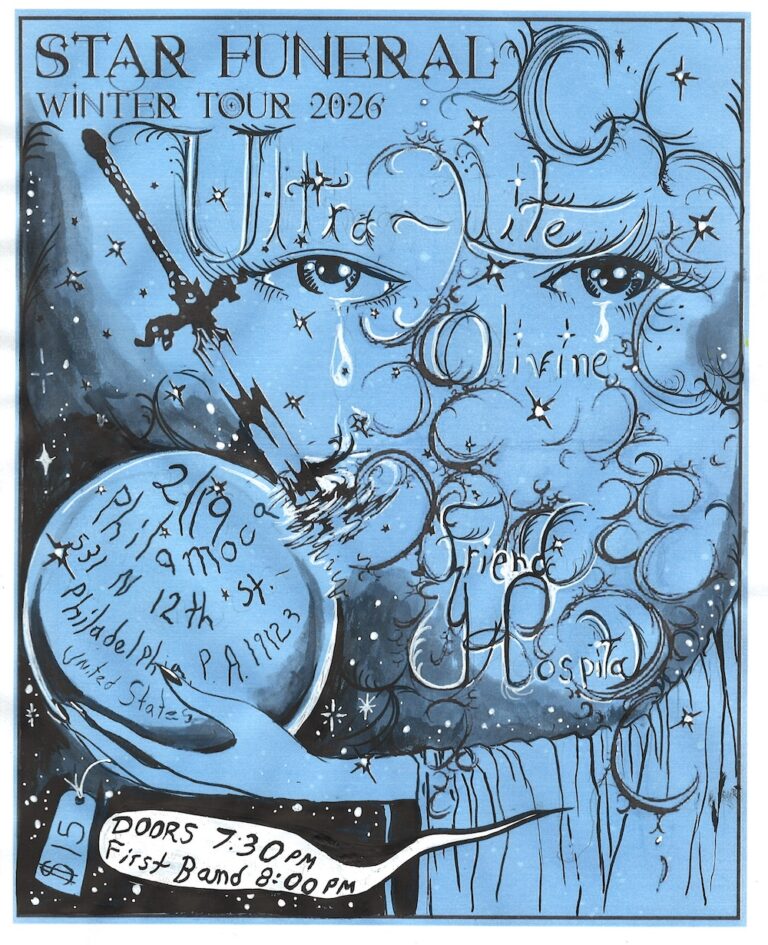 STAR FUNERAL
WINTER TOUR 2026
Ultra-Lite
Olivine
Friend
Hospital
2/19
Philamoca
531 N 12th St.
Philadelphia P.A. 19123
United States
$15
DOORS 7:30 PM
First Band 8:00 PM